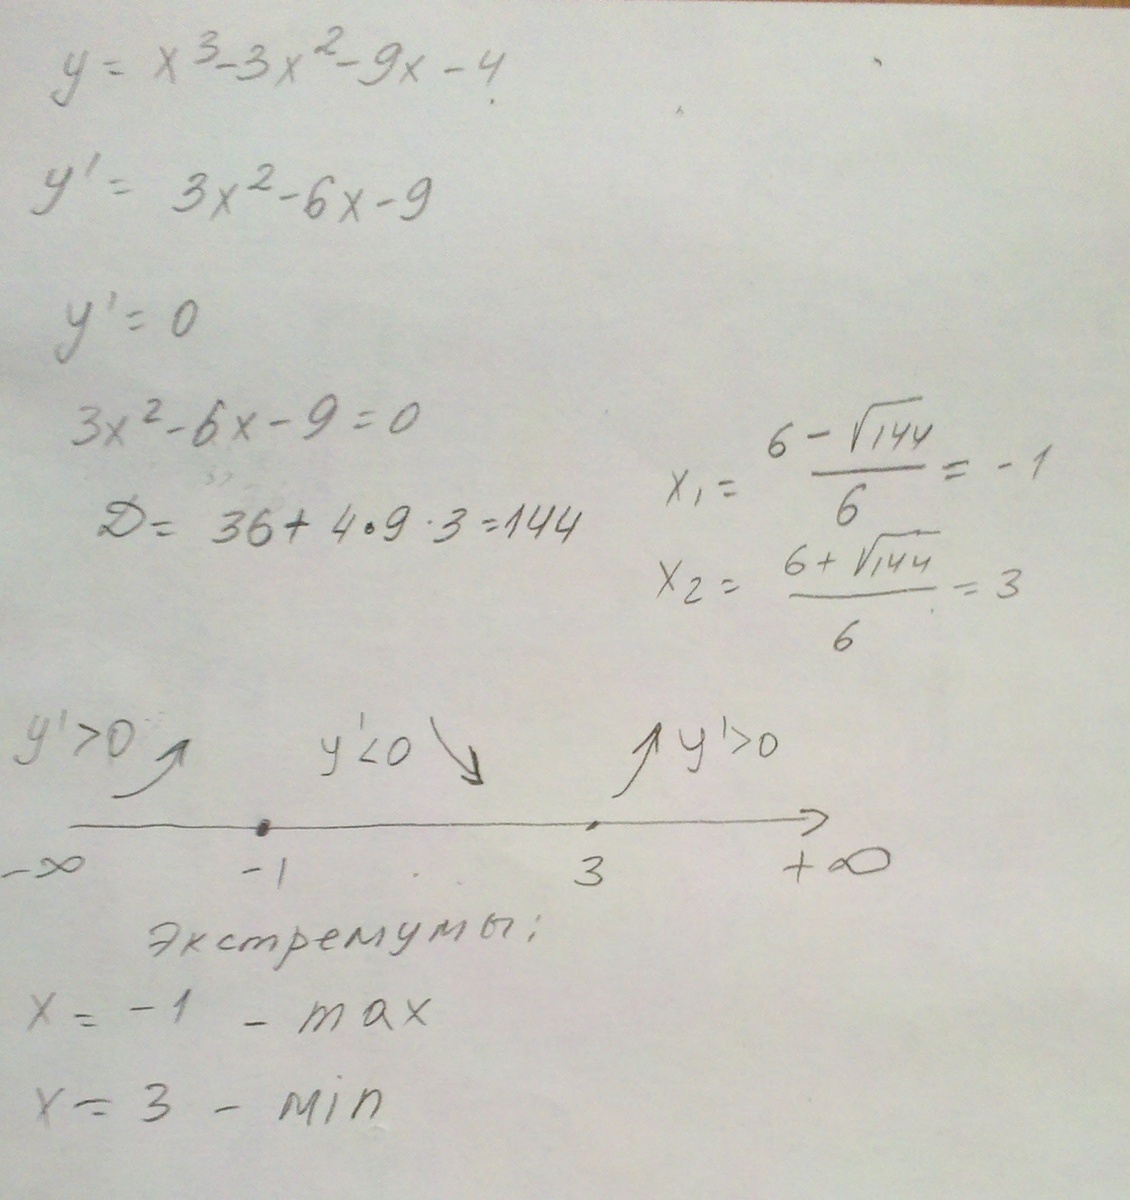 y = x³-3x²-9x-4
y' = 3x²-6x-9
y' = 0
3x²-6x-9=0
D = 36+4•9·3=144
x₁ = (6-√144)/6 = -1
x₂ = (6+√144)/6 = 3
y'>0 y'<0 y'>0
-∞ -1 3 +∞
Экстремумы:
x = -1 - max
x = 3 - min